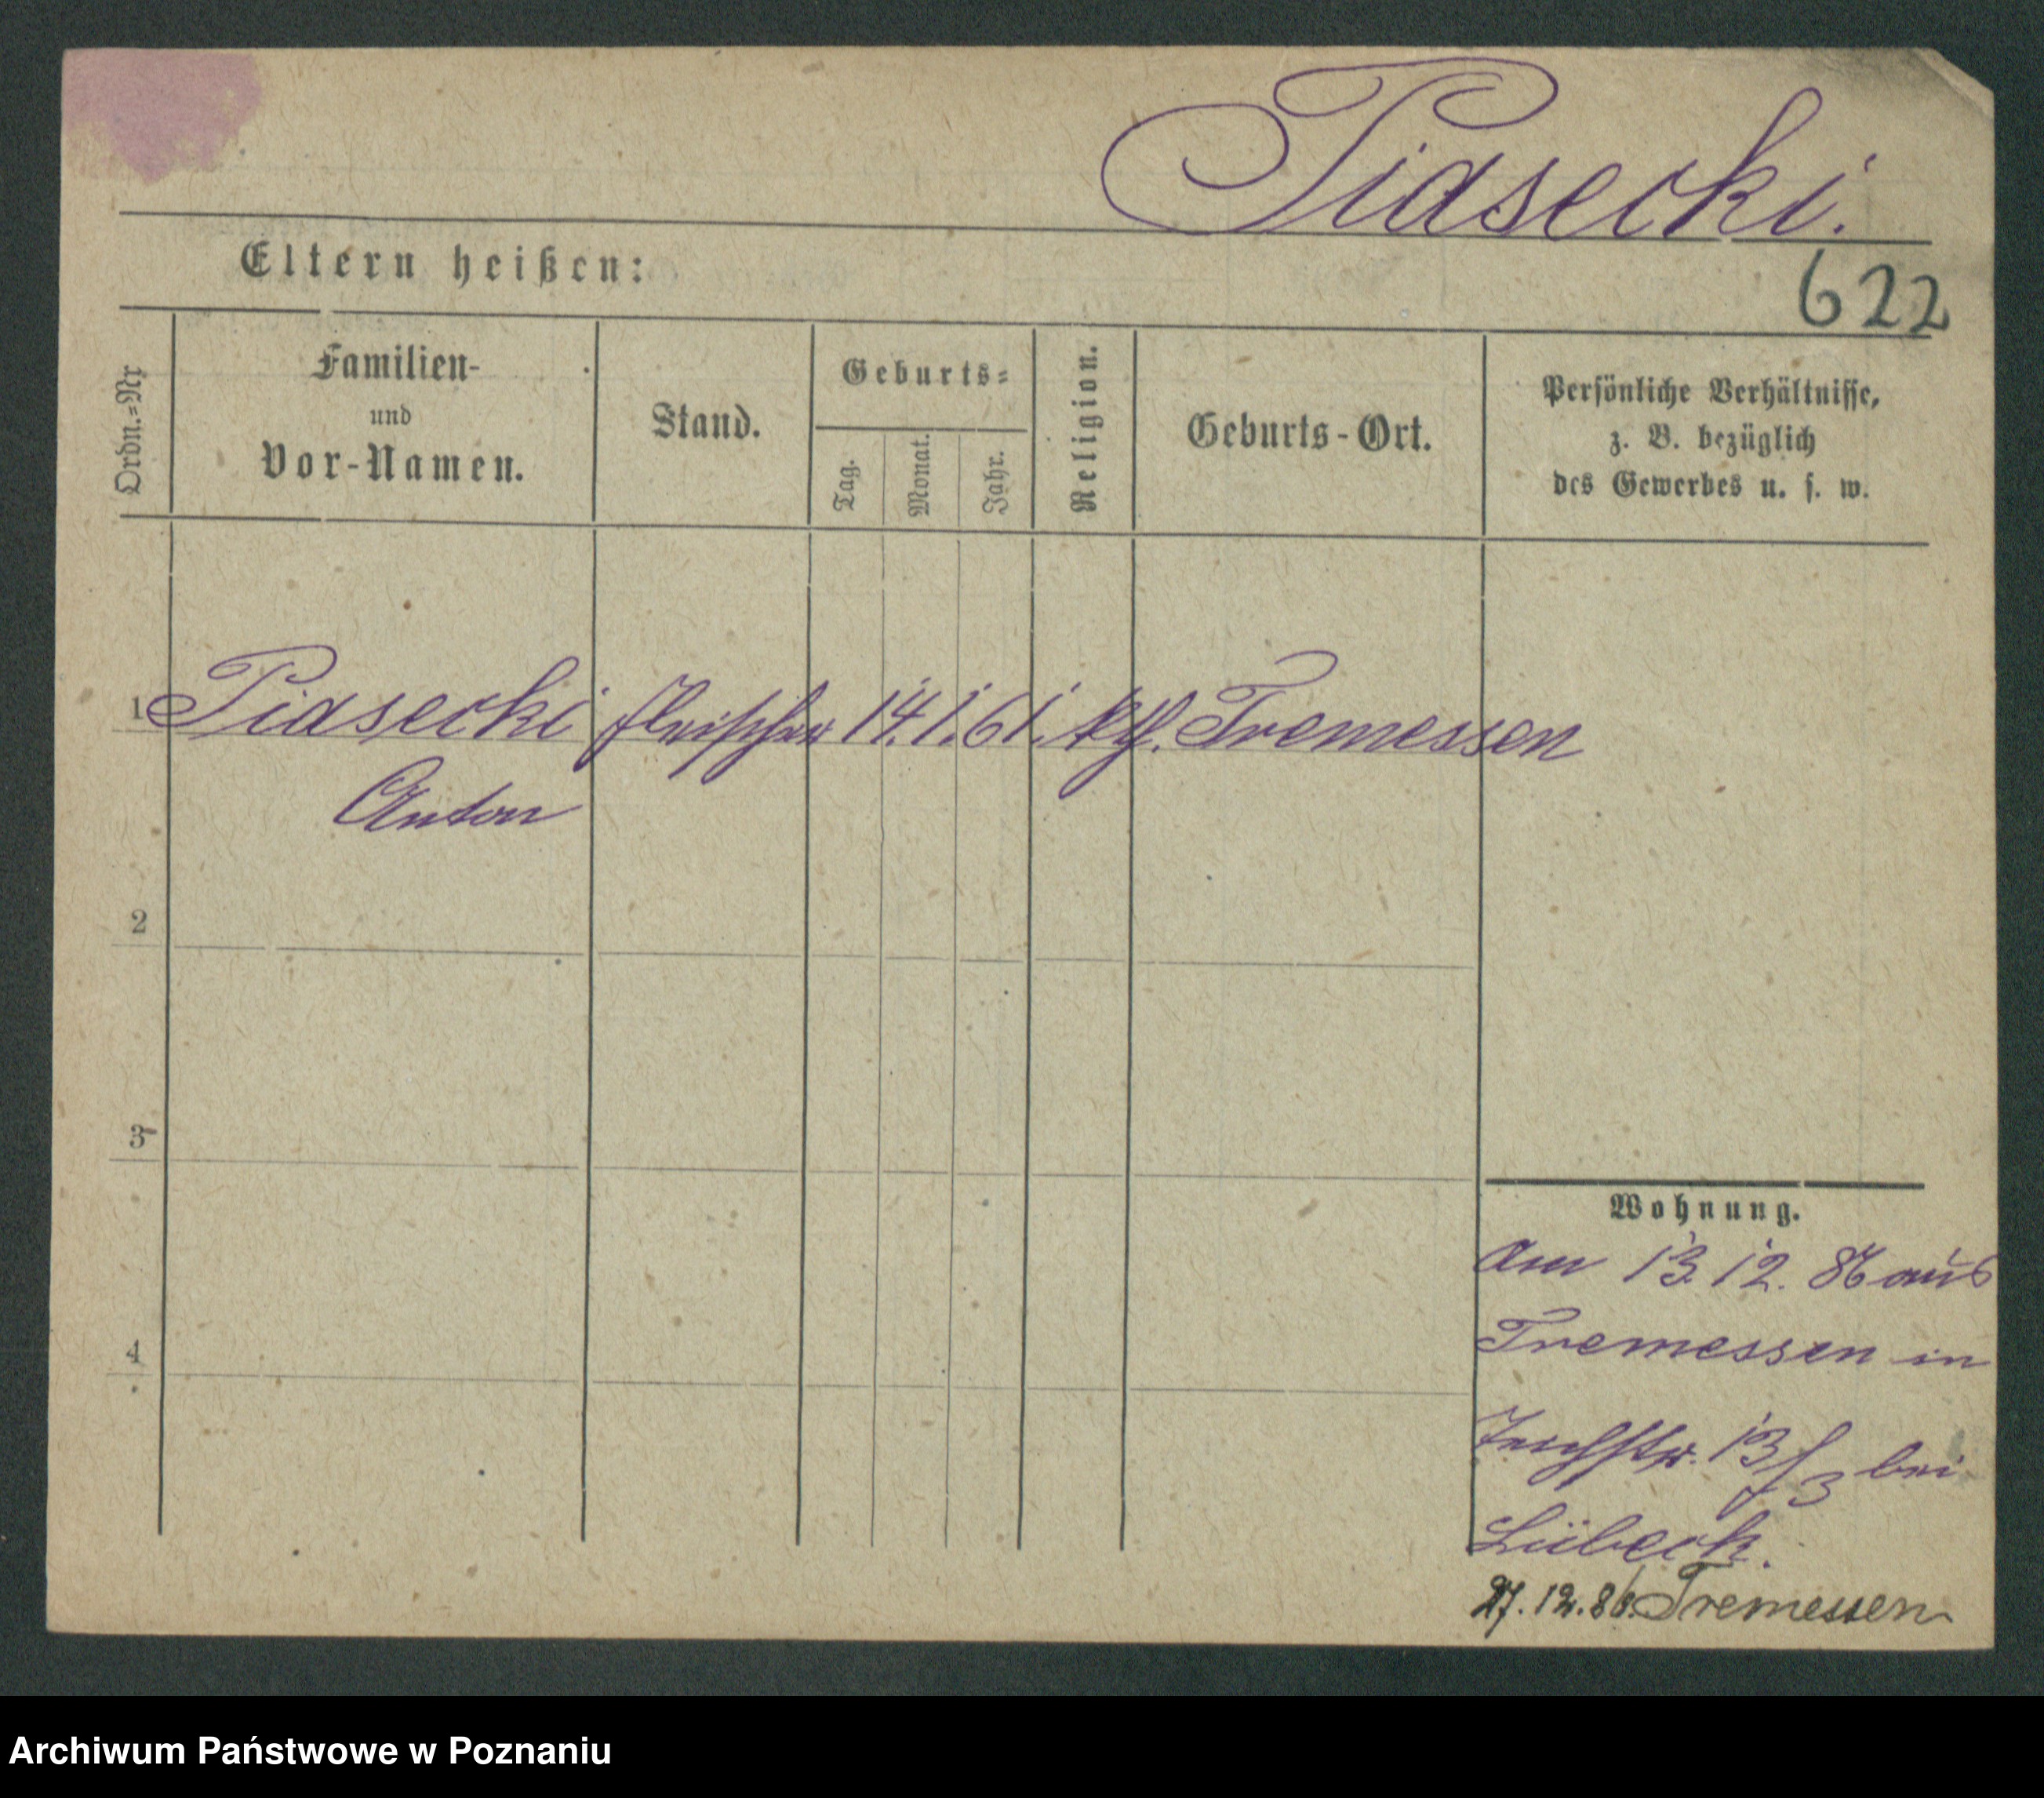 Piasecki.
622
Eltern heißen:
Ordn.=Nr
Familien-
und
Vor-Namen.
Stand.
Geburts=
Tag.
Monat.
Jahr.
Religion.
Geburts-Ort.
Persönliche Verhältnisse,
z. B. bezüglich
des Gewerbes u. s. w.
1 Piasecki Fleischer 14. 1. 61. kth. Tremessen
Anton
2
3
4
Wohnung.
Am 13. 12. 86 aus
Tremessen in
13/3 bei
Lübeck.
27.12.86. Tremessen
Archiwum Państwowe w Poznaniu